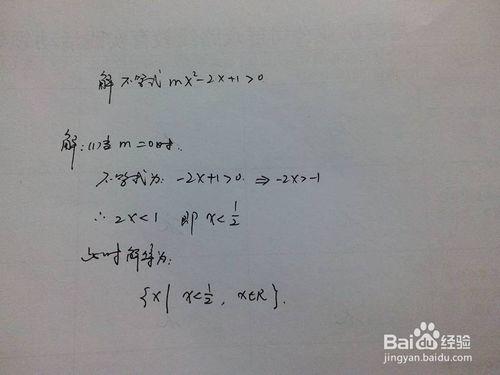 解不等式 mx²-2x+1>0
解:(1)当m=0时.
不等式为: -2x+1>0. ⇒ -2x>-1
∴ 2x<1 即 x<1/2
此时解集为:
{x| x<1/2, x∈R}.
Baidu经验
jingyan.baidu.com